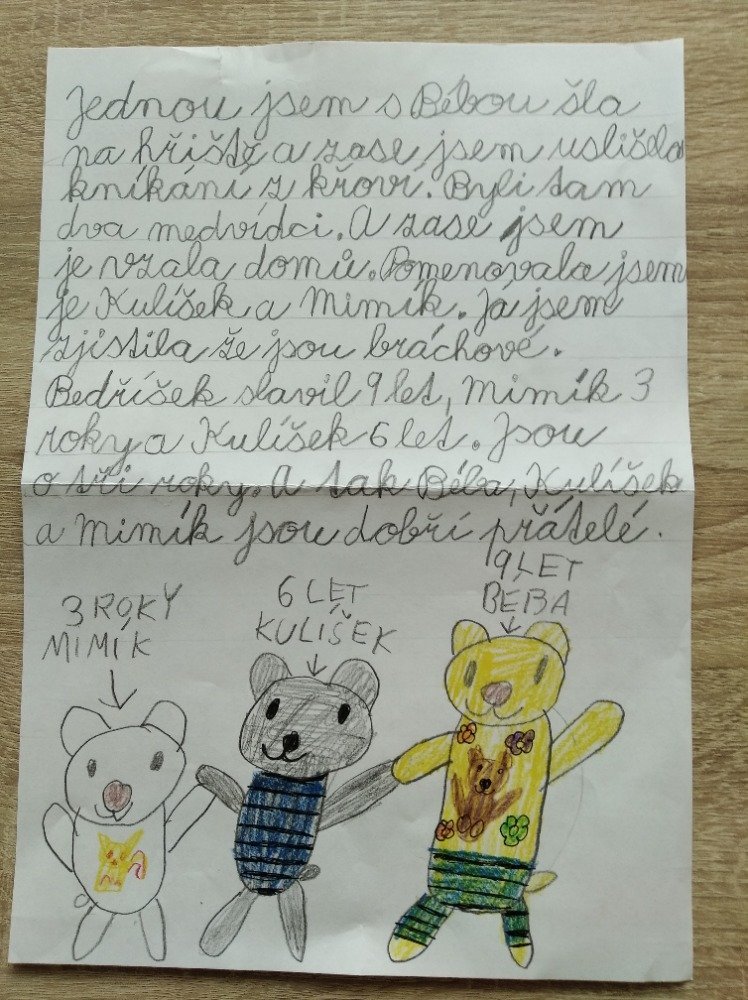 Jednou jsem s Bébou šla
na hřiště a zase jsem uslišela
kníkání z křoví. Byli tam
dva medvídci. A zase jsem
je vzala domů. Pomenovala jsem
je Kulíšek a Mimík. Já jsem
zjistila že jsou bráchové.
Bedříšek slavil 9 let, Mimík 3
roky a Kulíšek 6 let. Jsou
o tři roky. A tak Béba, Kulíšek
a Mimík jsou dobří přátelé.
3 ROKY
MIMÍK
6 LET
KULÍŠEK
9 LET
BÉBA